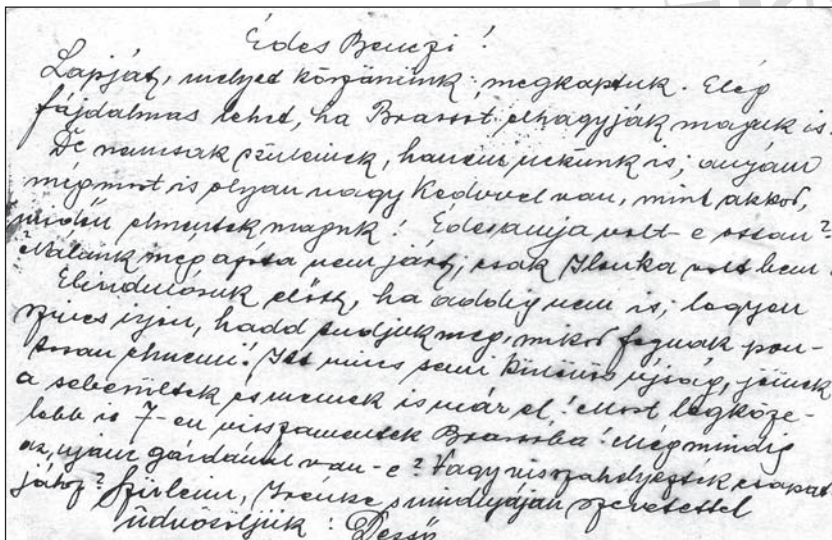 Édes Benczi!
Lapját, melyet köszönünk, megkaptuk. Elég
fájdalmas lehet, ha Brassót elhagyják maguk is.
De nemcsak szüleinek, hanem nekünk is; anyám
mégmost is olyan nagy kedvvel van, mint akkor,
midőn elmentek maguk! Édesanyja volt-e ottan?
Nálunk még azóta nem járt, csak Ilonka volt benn.
Elindulásuk előtt, ha addig nem is, legyen
szíves írjon, hadd tudjuk meg, mikor fognak pon-
tosan elmenni! Itt nincs semi különös újság, jönnek
a sebesültek és mennek is már el! Most legköze-
lebb is 7-en visszamentek Brassóba! Még mindig
az gárdánál van-e? Vagy visszahelyezték csapat
jához? Szüleim, Irénke s mindnyájan szeretettel
üdvözöljük: Dezső